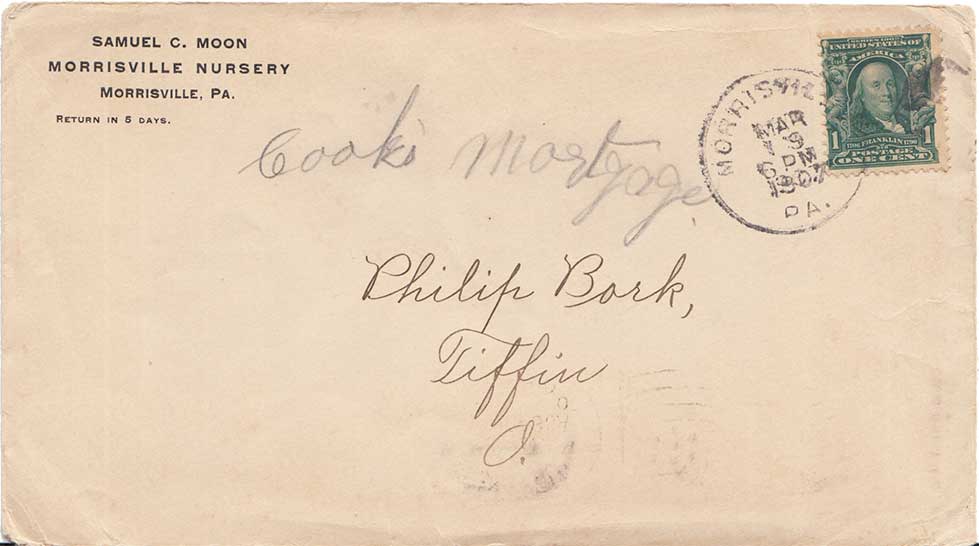 SAMUEL C. MOON
MORRISVILLE NURSERY
MORRISVILLE, PA.
RETURN IN 5 DAYS.
Cook's Mortgage
MORRISVILLE
MAR
6 PM
1907
PA.
SERIES 1902
UNITED STATES OF
AMERICA
1 FRANKLIN 1
POSTAGE
ONE CENT
Philip Bork,
Tiffin
O.